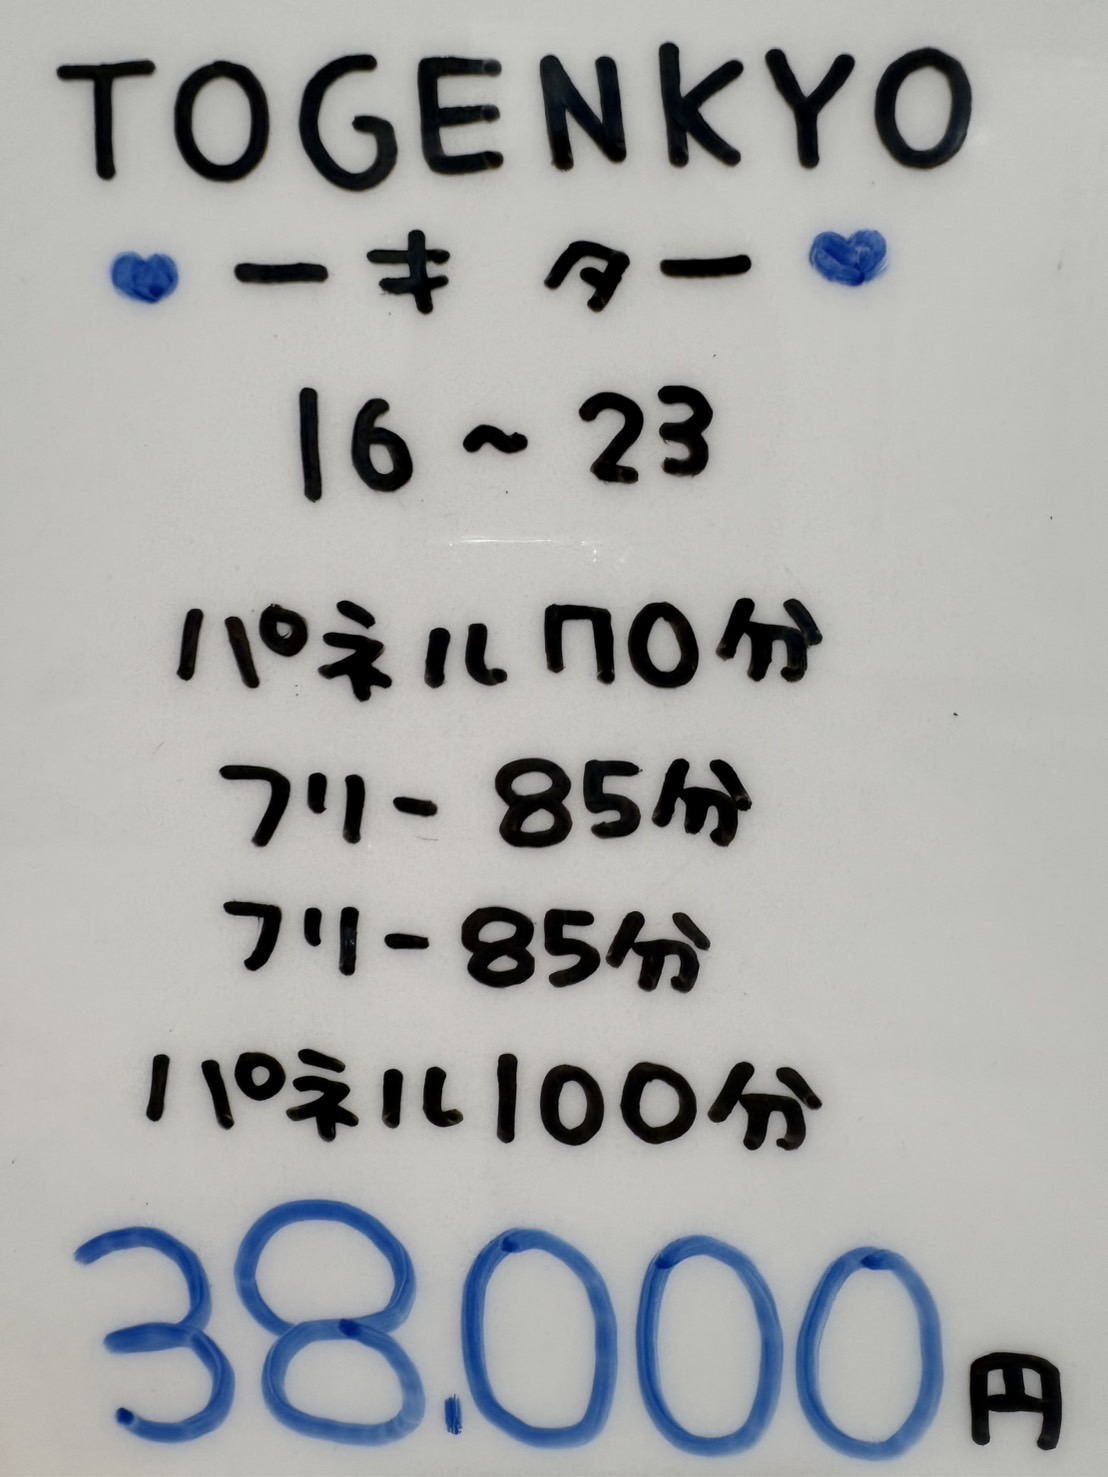 TOGENKYO
ーキ ター
16～23
パネル70分
フリー85分
フリー85分
パネル100分
38.000円